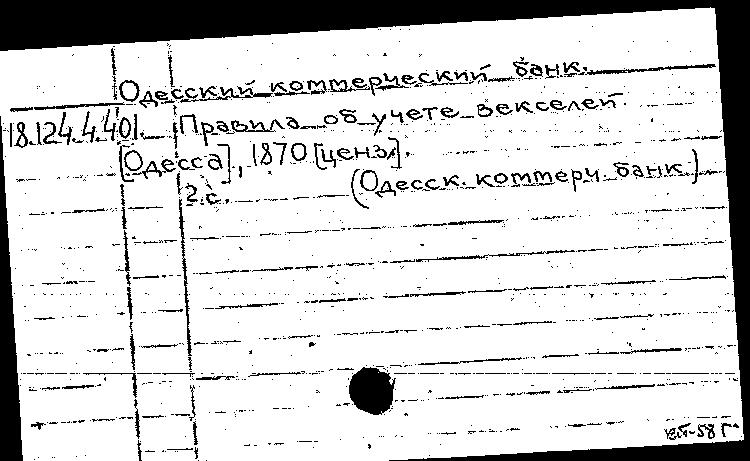 Одесский коммерческий банк.
18.124.4.401. Правила об учете векселей.
[Одесса], 1870 [ценз].
2 с. (Одесск. коммерч. банк)